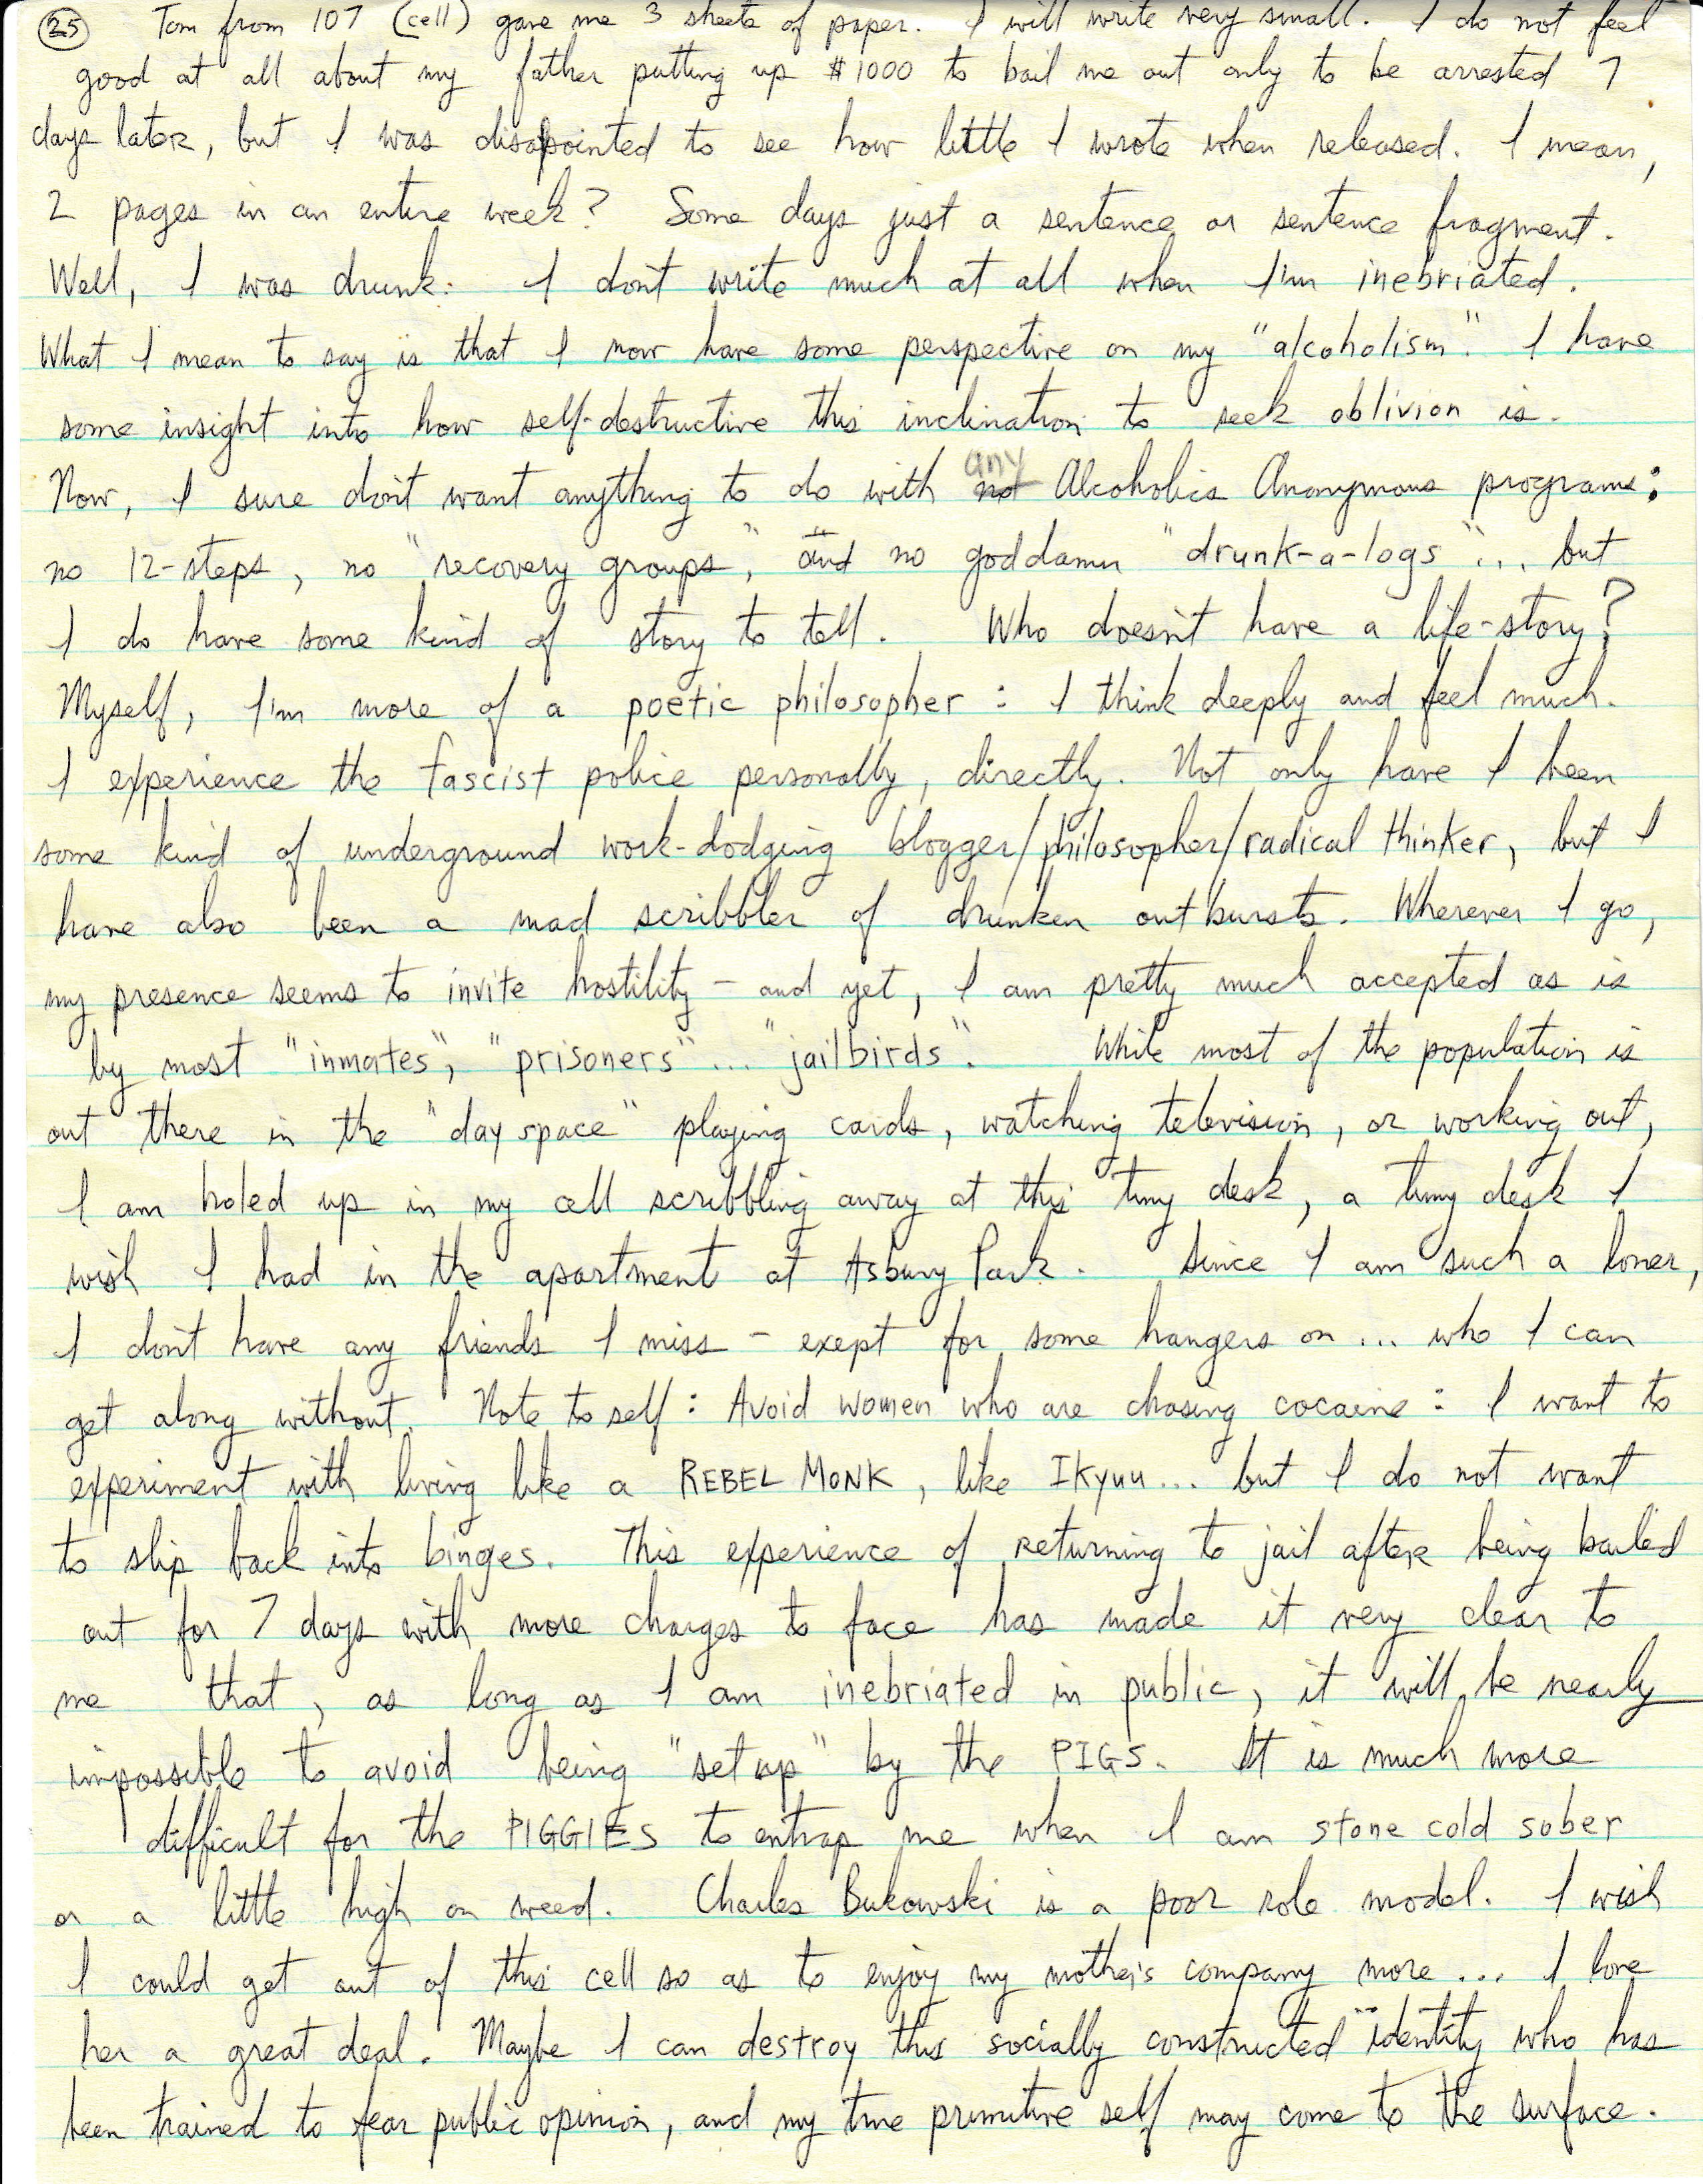 25 Tom from 107 (cell) gave me 3 sheets of paper. I will write very small. I do not feel
good at all about my father putting up $1000 to bail me out only to be arrested 7
days later, but I was disappointed to see how little I wrote when released. I mean,
2 pages in an entire week? Some days just a sentence or sentence fragment.
Well, I was drunk: I don't write much at all when I'm inebriated.
What I mean to say is that I now have some perspective on my "alcoholism". I have
some insight into how self-destructive this inclination to seek oblivion is.
Now, I sure don't want anything to do with any Alcoholics Anonymous programs:
no 12-steps, no "recovery groups", and no goddamn "drunk-a-logs"... but
I do have some kind of story to tell. Who doesn't have a life-story?
Myself, I'm more of a poetic philosopher: I think deeply and feel much.
I experience the fascist police personally, directly. Not only have I been
some kind of underground work-dodging blogger/philosopher/radical thinker, but I
have also been a mad scribbler of drunken outbursts. Wherever I go,
my presence seems to invite hostility - and yet, I am pretty much accepted as is
by most "inmates", "prisoners"... "jailbirds". While most of the population is
out there in the "day space" playing cards, watching television, or working out,
I am holed up in my cell scribbling away at this tiny desk, a tiny desk I
wish I had in the apartment at Asbury Park. Since I am such a loner,
I don't have any friends I miss - exept for some hangers on... who I can
get along without. Note to self: Avoid women who are chasing cocaine: I want to
experiment with living like a REBEL MONK, like IKyuu... but I do not want
to slip back into binges. This experience of returning to jail after being bailed
out for 7 days with more charges to face has made it very clear to
me that, as long as I am inebriated in public, it will be nearly
impossible to avoid being "set up" by the PIGS. It is much more
difficult for the PIGGIES to entrap me when I am stone cold sober
or a little high on weed. Charles Bukowski is a poor role model. I wish
I could get out of this cell so as to enjoy my mother's company more... I love
her a great deal. Maybe I can destroy this socially constructed identity who has
been trained to fear public opinion, and my true primitive self may come to the surface.